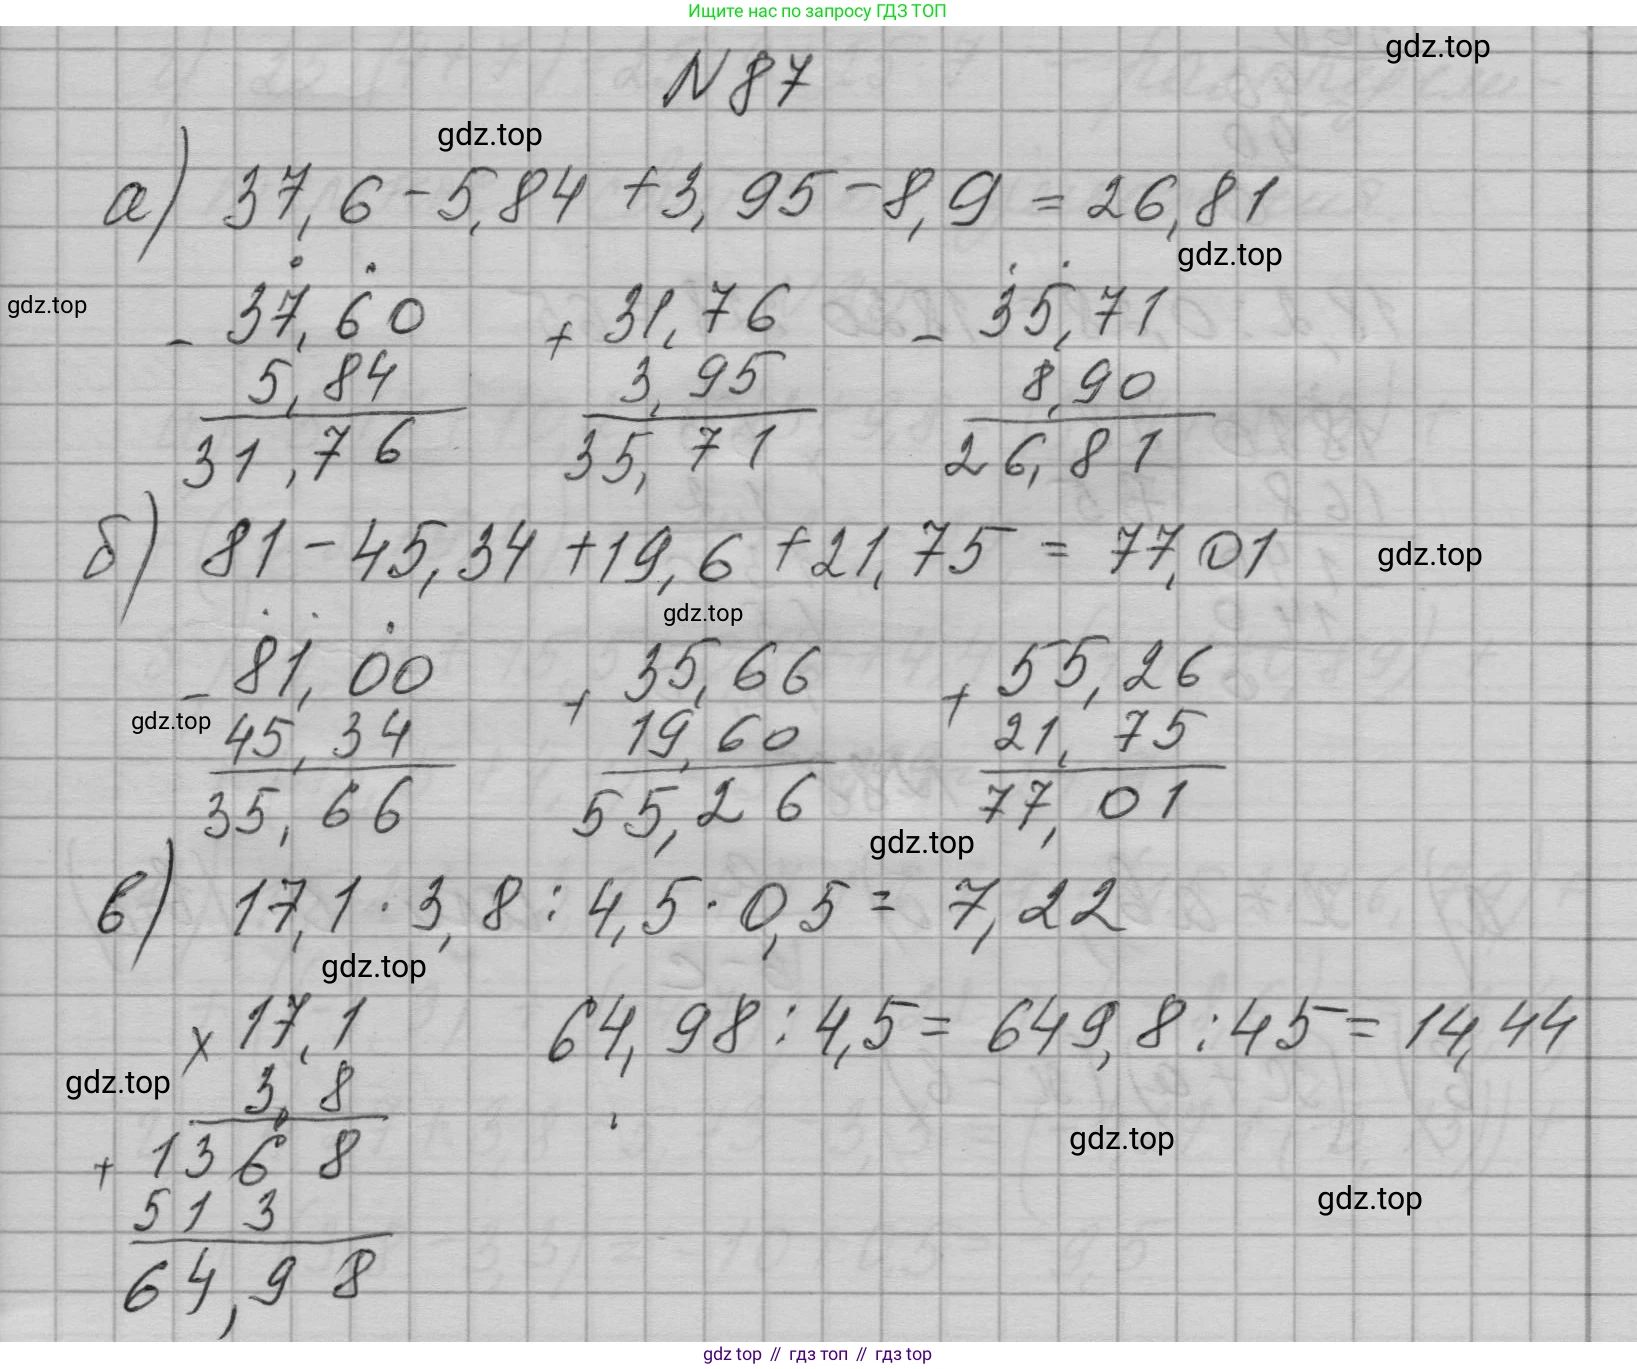 Ищите нас по запросу ГДЗ ТОП
gdz.top
N 87
gdz.top
а) 37,6 - 5,84 + 3,95 - 8,9 = 26,81
gdz.top
gdz.top
- 37,60 + 31,76 - 35,71
5,84 3,95 8,90
31,76 35,71 26,81
б) 81 - 45,34 + 19,6 + 21,75 = 77,01
gdz.top
gdz.top
- 81,00 + 35,66 + 55,26
gdz.top
45,34 19,60 21,75
35,66 55,26 77,01
gdz.top
в) 17,1 · 3,8 : 4,5 · 0,5 = 7,22
gdz.top
x 17,1 64,98 : 4,5 = 649,8 : 45 = 14,44
gdz.top
3,8
gdz.top
+ 1368
gdz.top
513
64,98
gdz top // гдз топ // гдз top